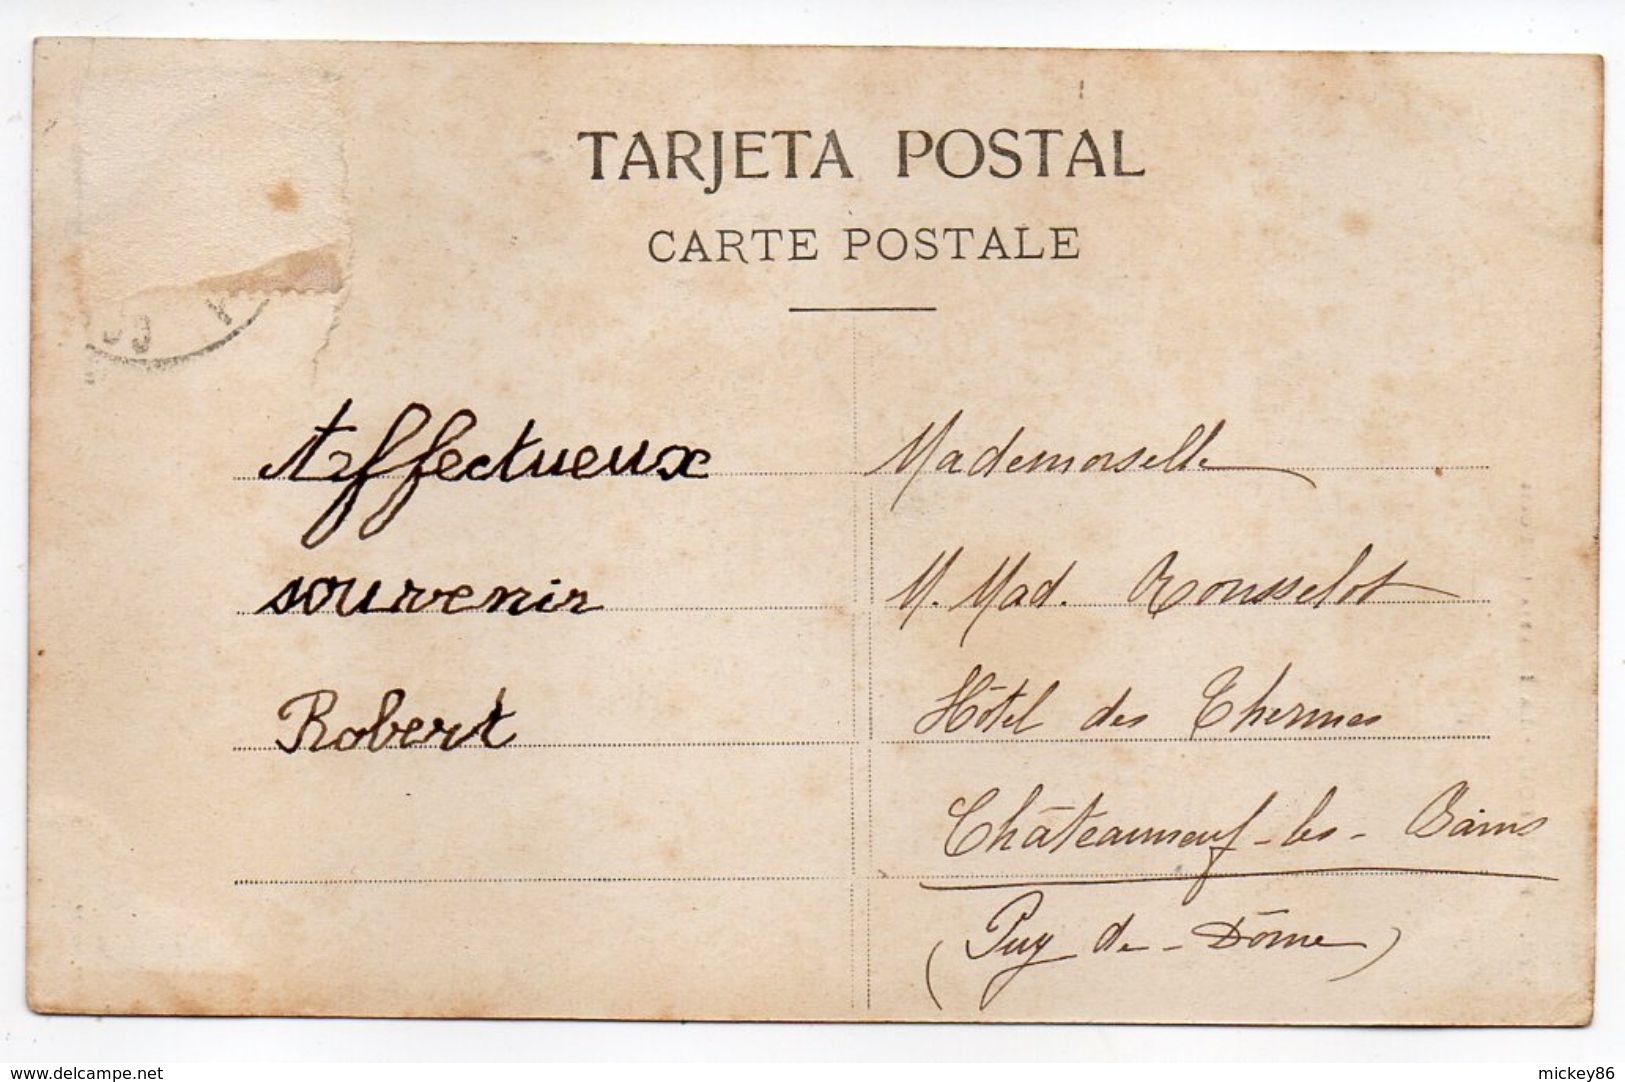 TARJETA POSTAL
CARTE POSTALE
Affectueux
souvenir
Robert
Mademoiselle
M. Mad. Rousselot
Hôtel des Thermes
Châteauneuf-les-Bains
(Puy de-Dôme)
www.delcampe.net
mickey86